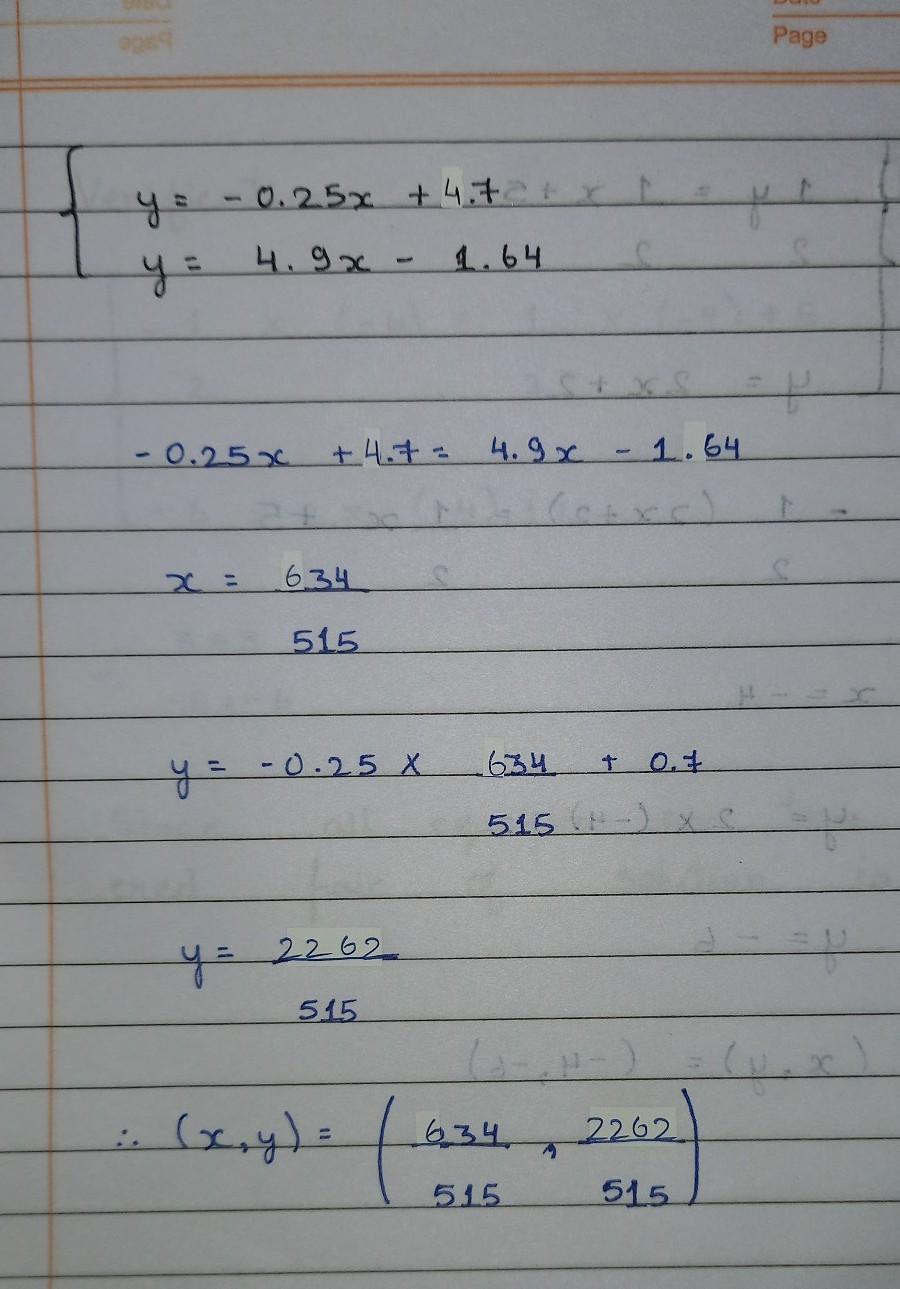 Page
y = - 0.25x + 4.7
y = 4.9x - 1.64
- 0.25x + 4.7 = 4.9x - 1.64
x = 634
515
y = - 0.25 x 634 + 0.7
515
y = 2262
515
∴ (x, y) = ( 634 , 2262 )
515 515